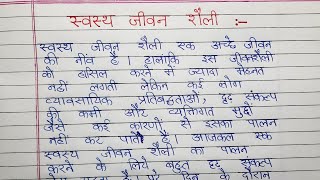 स्वस्थ जीवन शैली :-
स्वस्थ जीवन शैली एक अच्छे जीवन
की नींव है। हालांकि इस जीवनशैली
को हासिल करने में ज्यादा मेहनत
नहीं लगती लेकिन कई लोग
व्यावसायिक प्रतिबद्धताओं, दृढ़ संकल्प
की कमी और व्यक्तिगत मुद्दों
जैसे कई कारणों से इसका पालन
नहीं कर पाते हैं। आजकल एक
स्वस्थ जीवन शैली का पालन
करने के लिये बहुत दृढ़ संकल्प
है पूरे दिन के दौरान